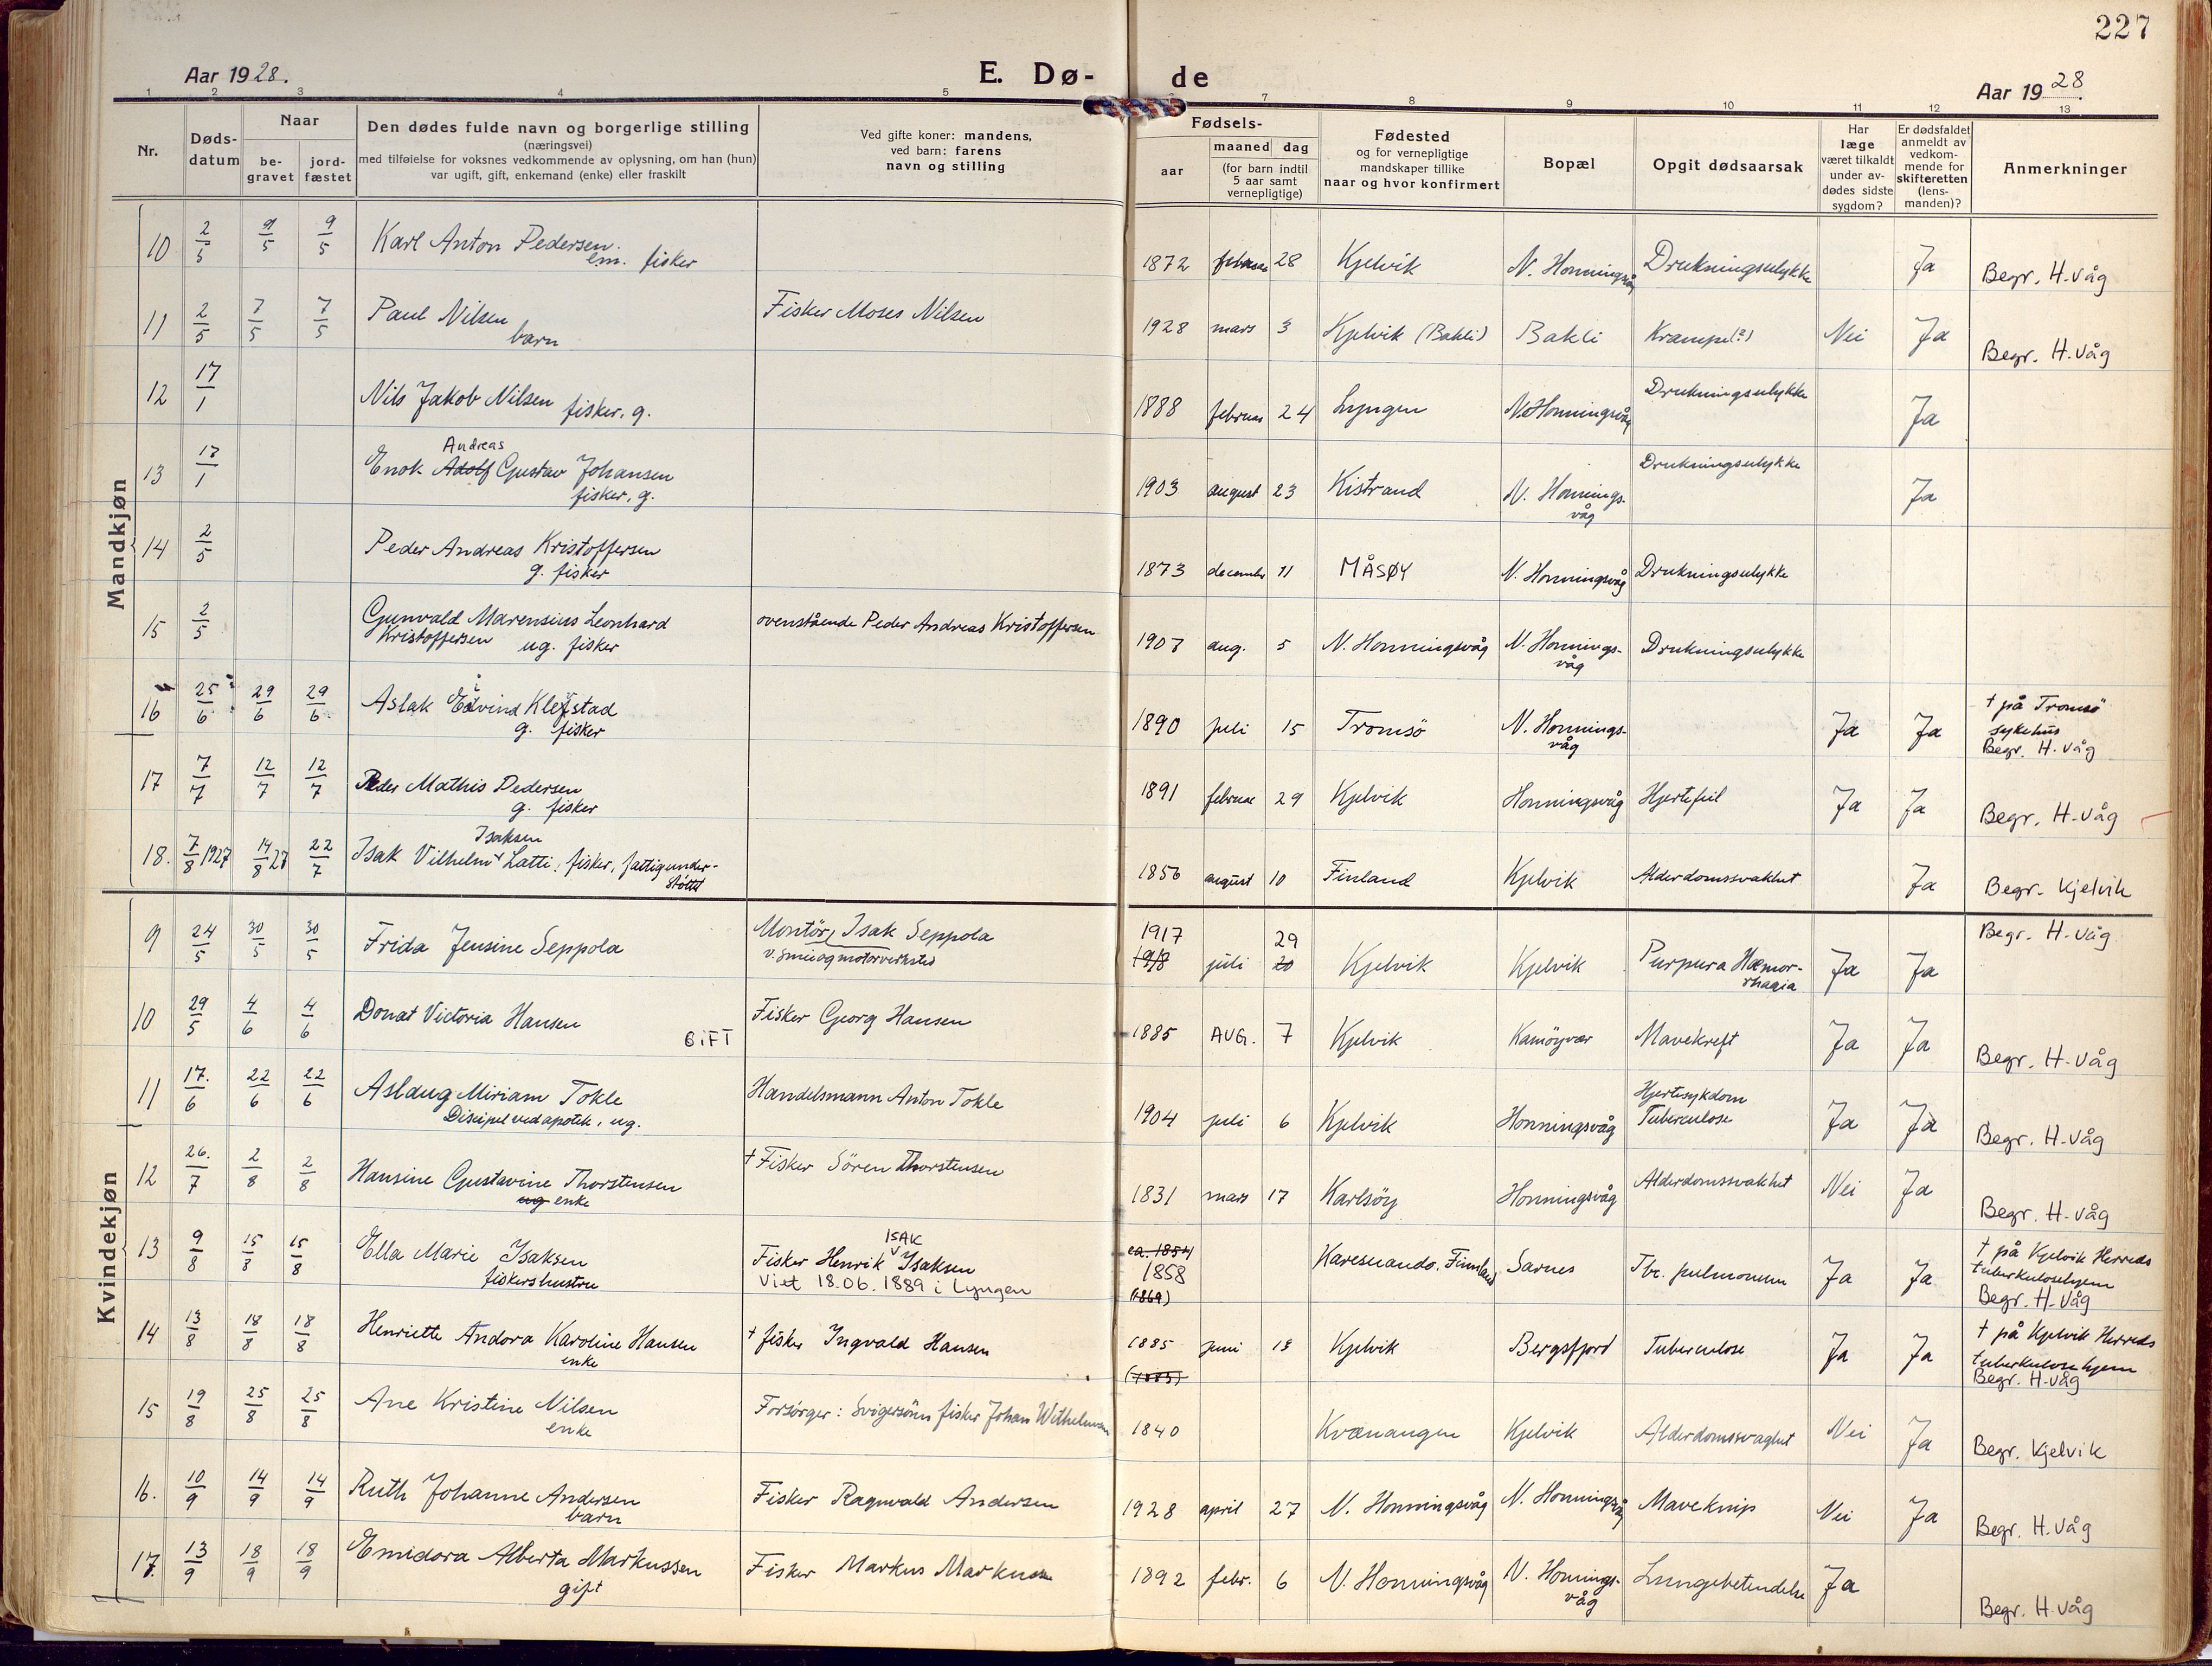 227
Aar 1928.
E. Dø- de
Aar 1928
1 2 3 4 5 7 8 9 10 11 12 13
Nr.
Døds-
datum
Naar
be-
gravet
jord-
fæstet
Den dødes fulde navn og borgerlige stilling
(næringsvei)
med tilføielse for voksnes vedkommende av oplysning, om han (hun)
var ugift, gift, enkemand (enke) eller fraskilt
Ved gifte koner: mandens,
ved barn: farens
navn og stilling
Fødsels-
aar
maaned dag
(for barn indtil
5 aar samt
vernepligtige)
Fødested
og for vernepligtige
mandskaper tillike
naar og hvor konfirmert
Bopæl
Opgit dødsaarsak
Har
læge
været tilkaldt
under av-
dødes sidste
sygdom?
Er dødsfaldet
anmeldt av
vedkom-
mende for
skifteretten
(lens-
manden)?
Anmerkninger
Mandkjøn
10 2/5 9/5 9/5 Karl Anton Pedersen.
em. fisker
1872 februar 28 Kjelvik N. Honningsvåg Drukningsulykke Ja Begr. H.våg
11 2/5 7/5 7/5 Paul Nilsen
barn
Fisker Moses Nilsen 1928 mars 3 Kjelvik (Bakli) Bakli Krampe(?) Nei Ja Begr. H.våg
12 17/1 Nils Jakob Nilsen fisker, g.
1888 februar 24 Lyngen N. Honningsvåg Drukningsulykke Ja
Andreas
13 17/1 Enok Adolf Gustav Johansen
fisker, g.
1903 august 23 Kistrand N. Honnings-
våg
Drukningsulykke Ja
14 2/5 Peder Andreas Kristoffersen
g. fisker
1873 decembr 11 MÅSØY N. Honningsvåg Drukningsulykke
15 2/5 Gunvald Marensius Leonhard
Kristoffersen ug. fisker
ovenstående Peder Andreas Kristoffersen 1907 aug. 5 N. Honningsvåg N. Honnings-
våg
Drukningsulykke
16 25/6 29/6 29/6 Aslak Eivind Klefstad
g. fisker
1890 juli 15 Tromsö N. Honnings-
våg
Ja Ja † på Tromsö
sykehus
Begr. H.våg
17 7/7 12/7 12/7 Peder Mathis Pedersen
g. fisker
1891 februar 29 Kjelvik Honningsvåg Hjertefeil Ja Ja Begr. H.våg
Isaksen
18. 7/8 1927 14/8 27 22/7 Isak Vilhelm Latti, fisker, fattigunder-
støttet
1856 august 10 Finland Kjelvik Alderdomssvakhet Ja Begr. Kjelvik
Kvindekjøn
9 24/5 30/5 30/5 Frida Jensine Seppola
Montör, Isak Seppola
v. smie og motorverksted
1917
1918 juli 29
20 Kjelvik Kjelvik Purpura Hæmor-
rhagia
Ja Ja Begr. H.våg.
10 29/5 4/6 4/6 Donat Victoria Hansen
GIFT
Fisker Georg Hansen 1885 AUG. 7 Kjelvik Kamöyvær Mavekreft Ja Ja Begr. H.våg
11 17./6 22/6 22/6 Aslaug Miriam Tokle
Discipel ved apotek, ug.
Handelsmann Anton Tokle 1904 juli 6 Kjelvik Honningsvåg Hjertesykdom
Tuberculose
Ja Ja Begr. H.våg
12 26./7 2/8 2/8 Hansine Gustavine Thorstensen
ug enke
† Fisker Sören Thorstensen 1831 mars 17 Karlsöy Honningsvåg Alderdomssvakhet Nei Ja Begr. H.våg
13 9/8 15/8 15/8 Ella Marie Isaksen
fiskers hustru
ISAK
Fisker Henrik Isaksen
Viet 18.06.1889 i Lyngen
ca. 1854
1858
(1869)
Karesuando, Finnland Sarnes Tbc. pulmonum Ja Ja † på Kjelvik Herreds
tuberkulosehjem
Begr. H.våg
14 13/8 18/8 18/8 Henriette Andora Karoline Hansen
enke
† fisker Ingvald Hansen 1885 juni 18
(1885)
Kjelvik Bergsfjord Tuberculose Ja Ja † på Kjelvik Herreds
tuberkulosehjem
Begr. H.våg
15 19/8 25/8 25/8 Ane Kristine Nilsen
enke
Forsørger: Svigersönn fisker Johan Wilhelmsen 1840 Kvænangen Kjelvik Alderdomssvaghet Nei Ja Begr. Kjelvik
16. 10/9 14/9 14/9 Ruth Johanne Andersen
barn
Fisker Ragnvald Andersen 1928 april 27 N. Honningsvåg N. Honningsvåg Maveknip Nei Ja Begr. H.våg
17. 13/9 18/9 18/9 Emidora Alberta Markussen
gift
Fisker Markus Markussen 1892 febr. 6 N. Honningsvåg N. Honnings-
våg
Lungebetendelse Ja Begr. H.våg